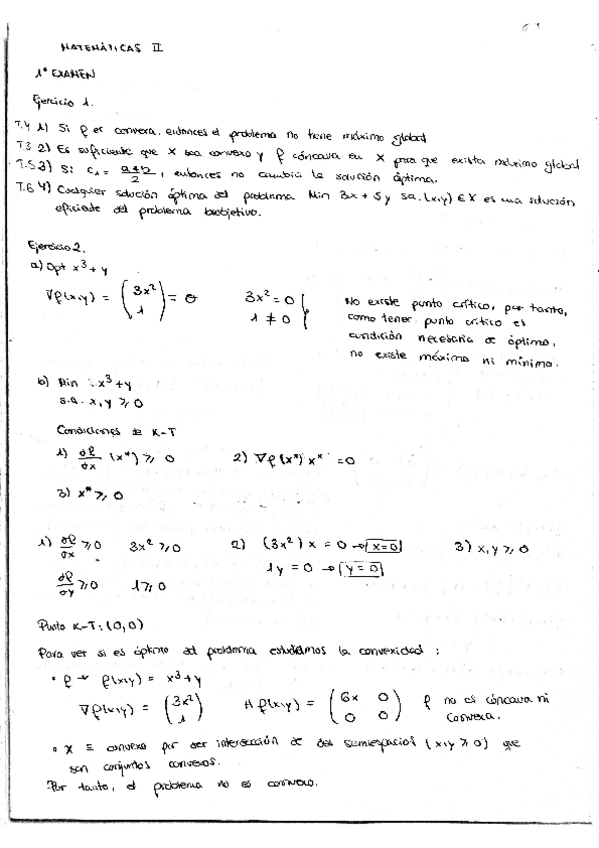 MATEMÁTICAS II
1º EXAMEN
Ejercicio 1.
T.4 1) Si f es convexa, entonces el problema no tiene máximo global
T.3 2) Es suficiente que X sea convexo y f cóncava en X para que exista máximo global
T.5 3) Si c₁ = a+b/2, entonces no cambia la solución óptima.
T.6 4) Cualquier solución óptima del problema Min 3x + 5y s.a. (x,y) ∈ X es una solución
eficiente del problema biobjetivo.
Ejercicio 2.
a) Opt x³ + y
∇f(x,y) = (3x² 1) = θ 3x² = 0 1 ≠ 0
No existe punto crítico, por tanto,
como tener punto crítico es
condición necesaria de óptimo,
no existe máximo ni mínimo.
b) Min x³ + y
s.a. x, y ≥ 0
Condiciones de K-T
1) ∂f/∂x (x*) ≥ 0 2) ∇f(x*) x* = 0
3) x* ≥ 0
1) ∂f/∂x ≥ 0 3x² ≥ 0 2) (3x²) x = 0 → x=0 3) x, y ≥ 0
∂f/∂y ≥ 0 1 ≥ 0 1y = 0 → y = 0
Punto K-T: (0,0)
Para ver si es óptimo del problema estudiamos la convexidad :
• f → f(x,y) = x³ + y
∇f(x,y) = (3x² 1) Hf(x,y) = (6x 0 0 0) f no es cóncava ni
convexa.
• X ≡ convexo por ser intersección de dos semiespacios (x,y ≥ 0) que
son conjuntos convexos.
Por tanto, el problema no es convexo.